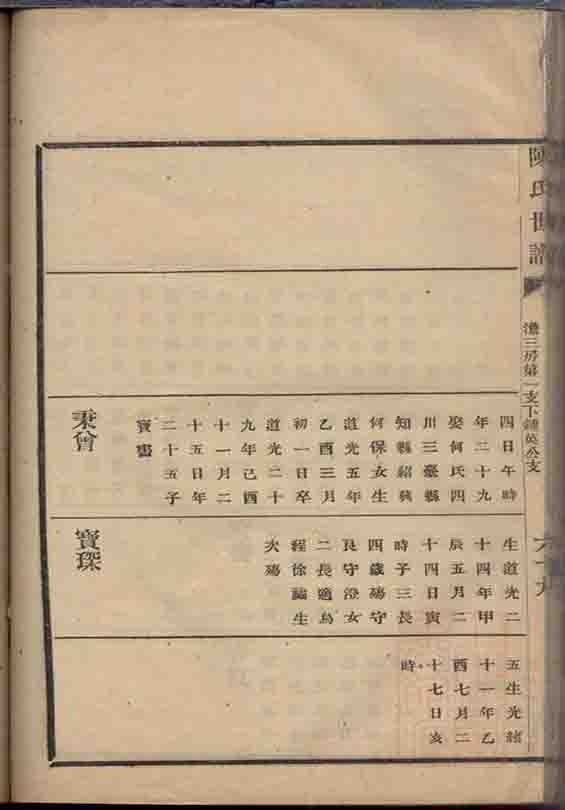 陳氏世譜
澹三房第一支下鍾英公支
六十九
四日午時
年二十九
娶何氏四
川三臺縣
知縣紹興
何保女生
道光五年
乙酉三月
初一日卒
道光二十
九年己酉
十一月二
十五日年
二十五子
寶書
秉曾
生道光二
十四年甲
辰五月二
十四日寅
時子三長
四歲殤守
良守澄女
二長適烏
程徐 生
次殤
寶琛
五生光緒
十一年乙
酉七月二
十七日亥
時